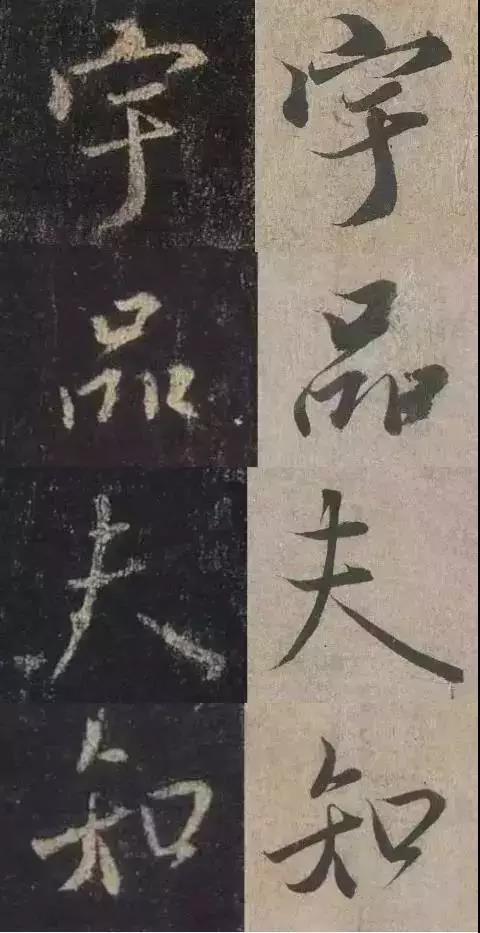 宇 宇
品 品
夫 夫
知 知